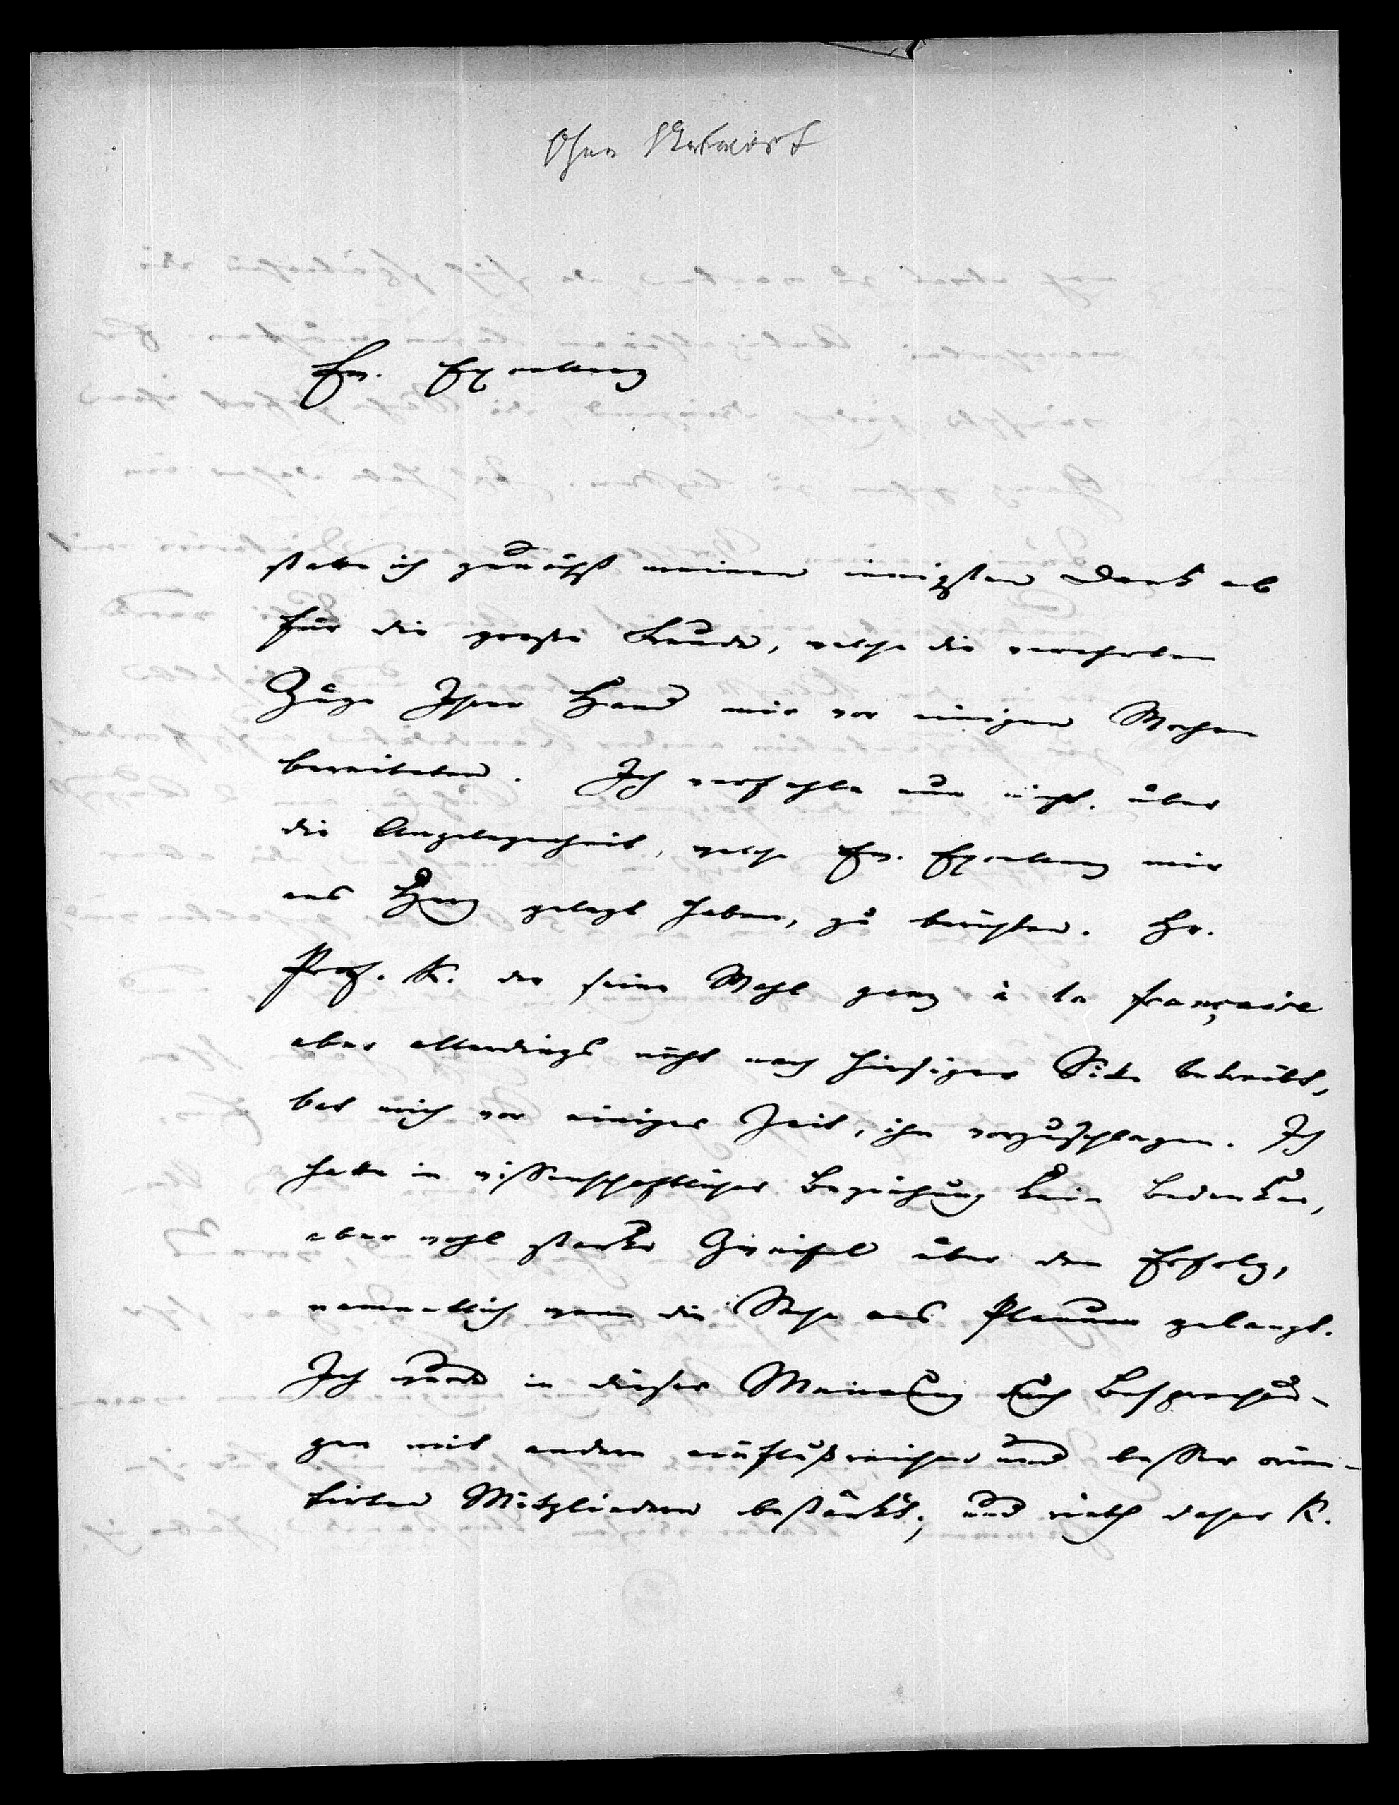 Ohne Antwort
Ew. Excellenz
statte ich zunächst meinen innigsten Dank ab
für die große Freude, welche die verehrten
Züge Ihrer Hand mir vor einigen Wochen
bereiteten. Ich verfehle nun nicht, über
die Angelegenheit, welche Ew. Excellenz mir
ans Herz gelegt haben, zu berichten. Hr.
Prof. K. der seine Wahl ganz à la française
aber allerdings nicht nach hiesiger Sitte betreibt,
bat mich vor einiger Zeit, ihn vorzuschlagen. Ich
hatte in wissenschaftlicher Beziehung kein Bedenken,
aber wohl starke Zweifel über den Erfolg,
namentlich wenn die Sache ans Plenum gelangt.
Ich ward in dieser Meinung durch Besprechun-
gen mit andern einflußreichen und besser orien-
tirten Mitgliedern bestärkt, und rieth daher K.